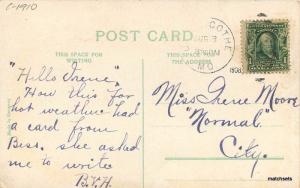 C-1910
POST CARD
THIS SPACE FOR
WRITING
THIS SPACE FOR
THE ADDRESS
COTHE
MO
1908
"Hello Irene".
How this for
hot weather had
a card from
Bess. she asked
me to write
B.Y.H.
Miss Irene Moore
"Normal"
City.
matchsets